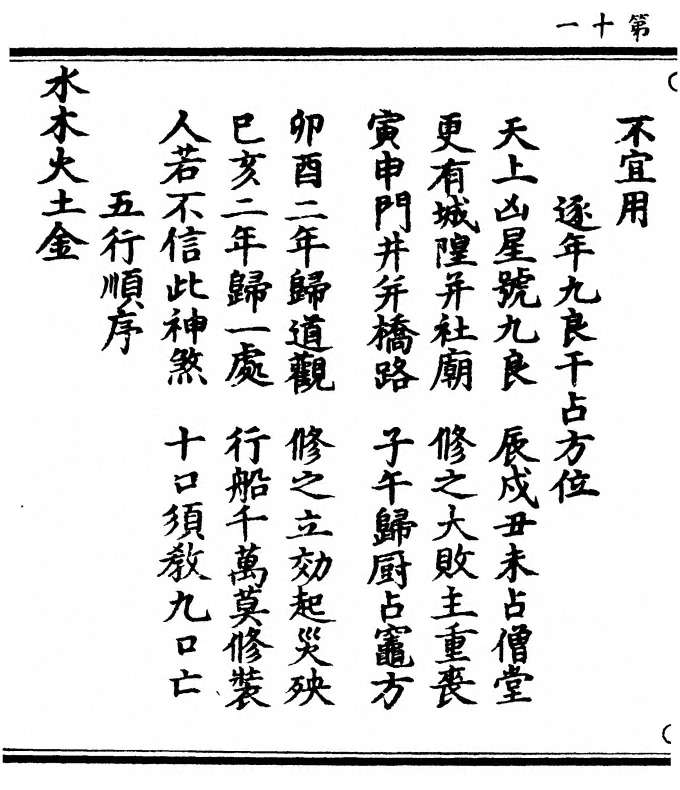 第十一
不宜用
逐年九良干占方位
天上凶星號九良　辰戍丑未占僧堂
更有城隍并社廟　修之大敗主重喪
寅申門井并橋路　子午歸厨占竈方
卯酉二年歸道觀　修之立効起災殃
巳亥二年歸一處　行船千萬莫修裝
人若不信此神煞　十口須教九口亡
五行順序
水木火土金